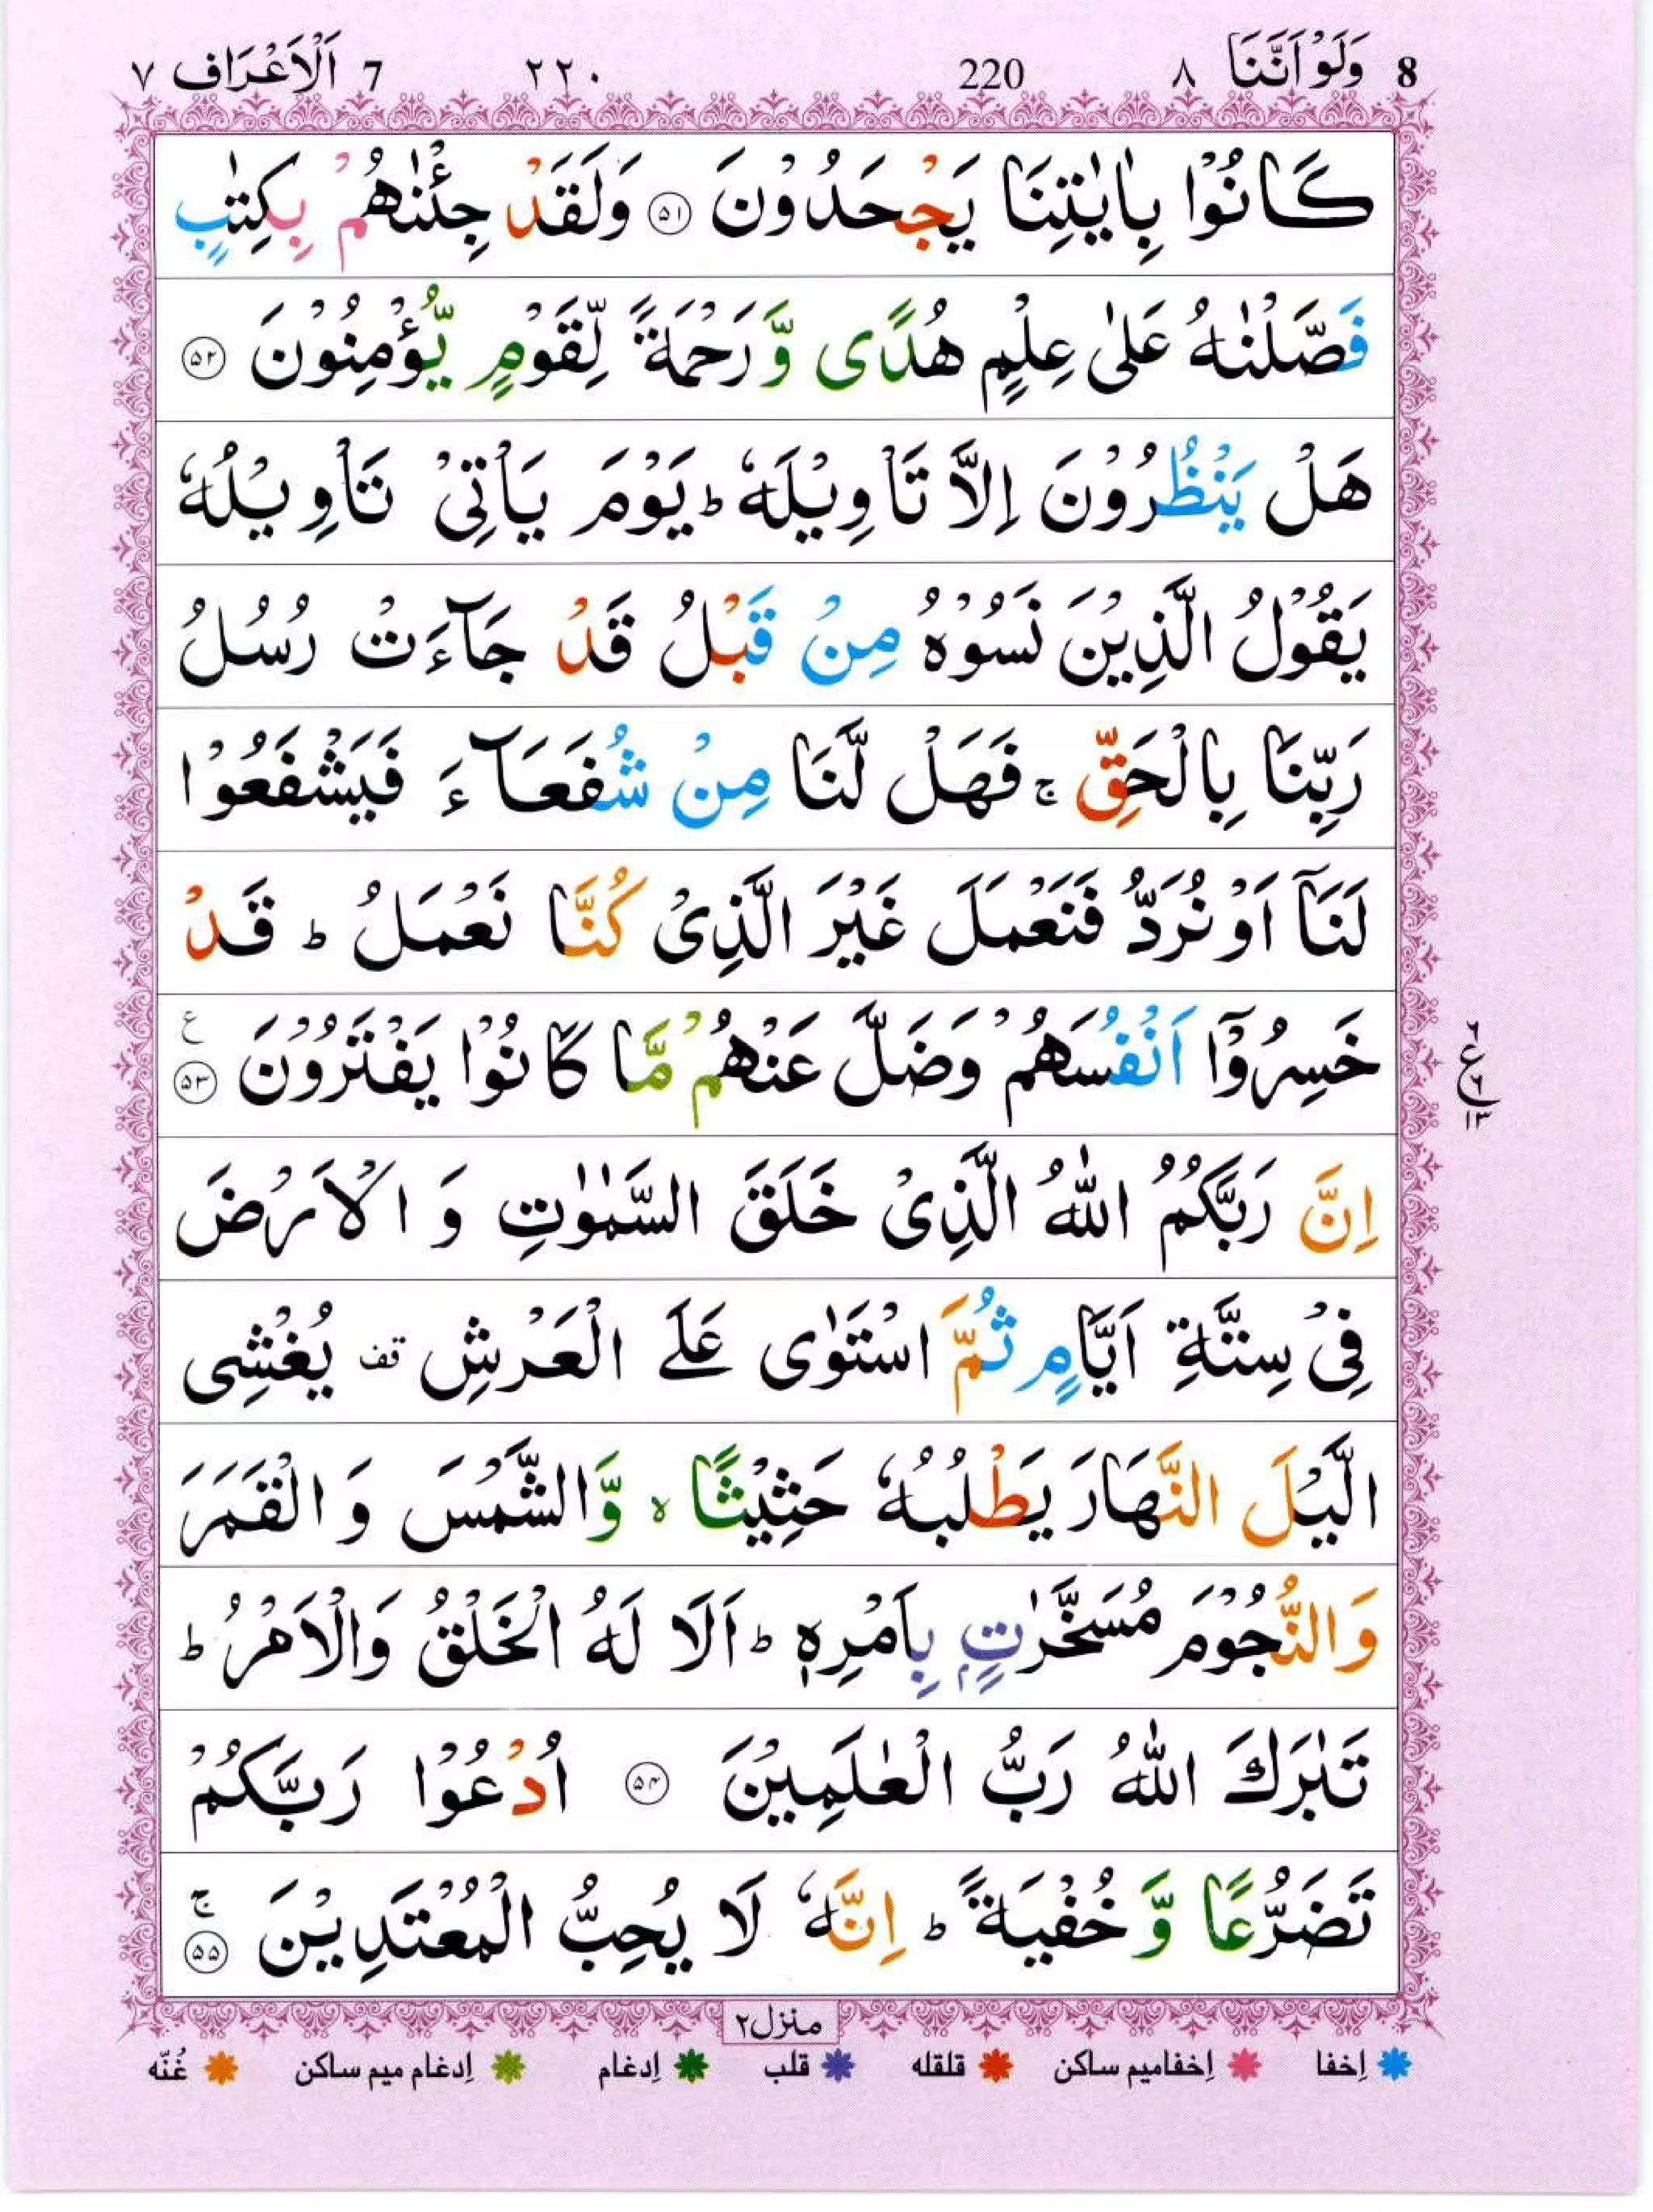 8 وَلَوْاَنَّنَا ٨ 220 ٢٢٠ 7 اَلْاَعْرَاف ٧
كَانُوْا بِاٰيٰتِنَا يَجْحَدُوْنَ ﴿۵۱﴾ وَلَقَدْ جِئْنٰهُمْ بِكِتٰبٍ
فَصَّلْنٰهُ عَلٰى عِلْمٍ هُدًى وَّرَحْمَةً لِّقَوْمٍ يُّؤْمِنُوْنَ ﴿۵۲﴾
هَلْ يَنْظُرُوْنَ اِلَّا تَاْوِيْلَهٗ ؕ يَوْمَ يَاْتِىْ تَاْوِيْلُهٗ
يَقُوْلُ الَّذِيْنَ نَسُوْهُ مِنْ قَبْلُ قَدْ جَآءَتْ رُسُلُ
رَبِّنَا بِالْحَقِّ ۚ فَهَلْ لَّنَا مِنْ شُفَعَآءَ فَيَشْفَعُوْا
لَنَاۤ اَوْ نُرَدُّ فَنَعْمَلَ غَيْرَ الَّذِىْ كُنَّا نَعْمَلُ ؕ قَدْ
خَسِرُوْۤا اَنْفُسَهُمْ وَضَلَّ عَنْهُمْ مَّا كَانُوْا يَفْتَرُوْنَ ﴿۵۳﴾ ع
٦ ع ٦ ١٣
اِنَّ رَبَّكُمُ اللّٰهُ الَّذِىْ خَلَقَ السَّمٰوٰتِ وَ الْاَرْضَ
فِىْ سِتَّةِ اَيَّامٍ ثُمَّ اسْتَوٰى عَلَى الْعَرْشِ قف يُغْشِى
الَّيْلَ النَّهَارَ يَطْلُبُهٗ حَثِيْثًا ۙ وَّالشَّمْسَ وَ الْقَمَرَ
وَالنُّجُوْمَ مُسَخَّرٰتٍۭ بِاَمْرِهٖ ؕ اَلَا لَهُ الْخَلْقُ وَالْاَمْرُ ؕ
تَبٰرَكَ اللّٰهُ رَبُّ الْعٰلَمِيْنَ ﴿۵۴﴾ اُدْعُوْا رَبَّكُمْ
تَضَرُّعًا وَّ خُفْيَةً ؕ اِنَّهٗ لَا يُحِبُّ الْمُعْتَدِيْنَ ﴿۵۵﴾ ۚ
منزل۲
اِخفا اِخفامیم ساکن قلقله قلب اِدغام اِدغام میم ساکن غُنّه